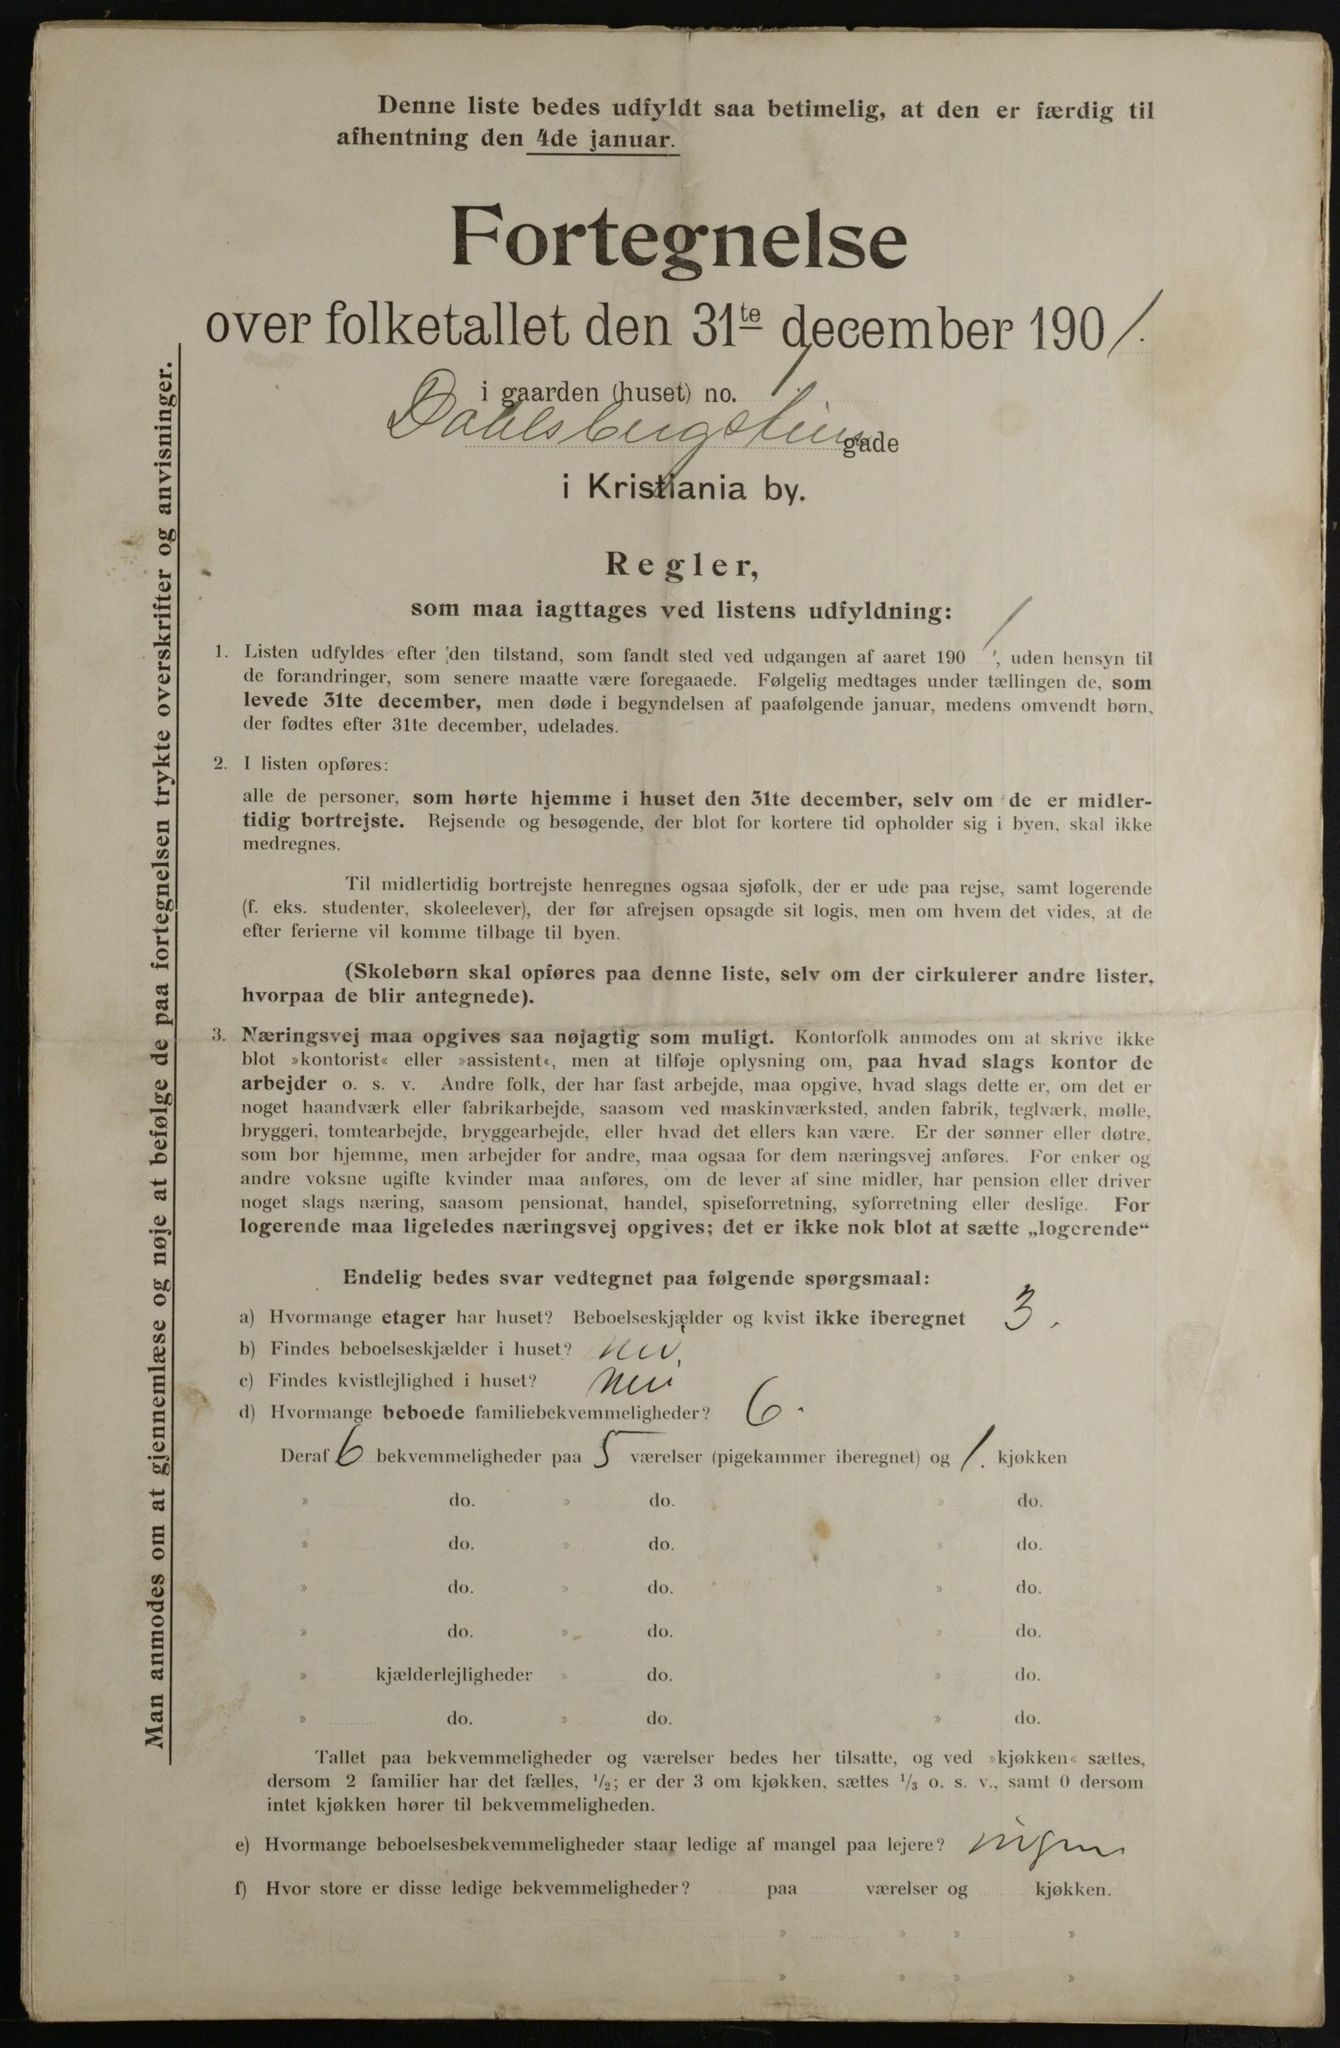 Denne liste bedes udfyldt saa betimelig, at den er færdig til
afhentning den 4de januar.
Fortegnelse
over folketallet den 31te december 1901.
i gaarden (huset) no. 1
Dahlsbergstien gade
i Kristiania by.
Regler,
som maa iagttages ved listens udfyldning:
1. Listen udfyldes efter den tilstand, som fandt sted ved udgangen af aaret 1901, uden hensyn til
de forandringer, som senere maatte være foregaaede. Følgelig medtages under tællingen de, som
levede 31te december, men døde i begyndelsen af paafølgende januar, medens omvendt børn,
der fødtes efter 31te december, udelades.
2. I listen opføres:
alle de personer, som hørte hjemme i huset den 31te december, selv om de er midler-
tidig bortrejste. Rejsende og besøgende, der blot for kortere tid opholder sig i byen, skal ikke
medregnes.
Til midlertidig bortrejste henregnes ogsaa sjøfolk, der er ude paa rejse, samt logerende
(f. eks. studenter, skoleelever), der før afrejsen opsagde sit logis, men om hvem det vides, at de
efter ferierne vil komme tilbage til byen.
(Skolebørn skal opføres paa denne liste, selv om der cirkulerer andre lister,
hvorpaa de blir antegnede).
3. Næringsvej maa opgives saa nøjagtig som muligt. Kontorfolk anmodes om at skrive ikke
blot »kontorist« eller »assistent«, men at tilføje oplysning om, paa hvad slags kontor de
arbejder o. s. v. Andre folk, der har fast arbejde, maa opgive, hvad slags dette er, om det er
noget haandværk eller fabrikarbejde, saasom ved maskinværksted, anden fabrik, teglværk, mølle,
bryggeri, tomtearbejde, bryggearbejde, eller hvad det ellers kan være. Er der sønner eller døtre,
som bor hjemme, men arbejder for andre, maa ogsaa for dem næringsvej anføres. For enker og
andre voksne ugifte kvinder maa anføres, om de lever af sine midler, har pension eller driver
noget slags næring, saasom pensionat, handel, spiseforretning, syforretning eller deslige. For
logerende maa ligeledes næringsvej opgives; det er ikke nok blot at sætte „logerende“
Endelig bedes svar vedtegnet paa følgende spørgsmaal:
a) Hvormange etager har huset? Beboelseskjælder og kvist ikke iberegnet 3.
b) Findes beboelseskjælder i huset? nei.
c) Findes kvistlejlighed i huset? nei
d) Hvormange beboede familiebekvemmeligheder? 6.
Deraf 6 bekvemmeligheder paa 5 værelser (pigekammer iberegnet) og 1. kjøkken
» do. » do. » do.
» do. » do. » do.
» do. » do. » do.
» do. » do. » do.
» kjælderlejligheder » do. » do.
» do. » do. » do.
Tallet paa bekvemmeligheder og værelser bedes her tilsatte, og ved »kjøkken« sættes,
dersom 2 familier har det fælles, 1/2; er der 3 om kjøkken, sættes 1/3 o. s. v., samt 0 dersom
intet kjøkken hører til bekvemmeligheden.
e) Hvormange beboelsesbekvemmeligheder staar ledige af mangel paa lejere? ingen
f) Hvor store er disse ledige bekvemmeligheder? paa værelser og kjøkken.
» » » »
» » » »
Man anmodes om at gjennemlæse og nøje at befølge de paa fortegnelsen trykte overskrifter og anvisninger.